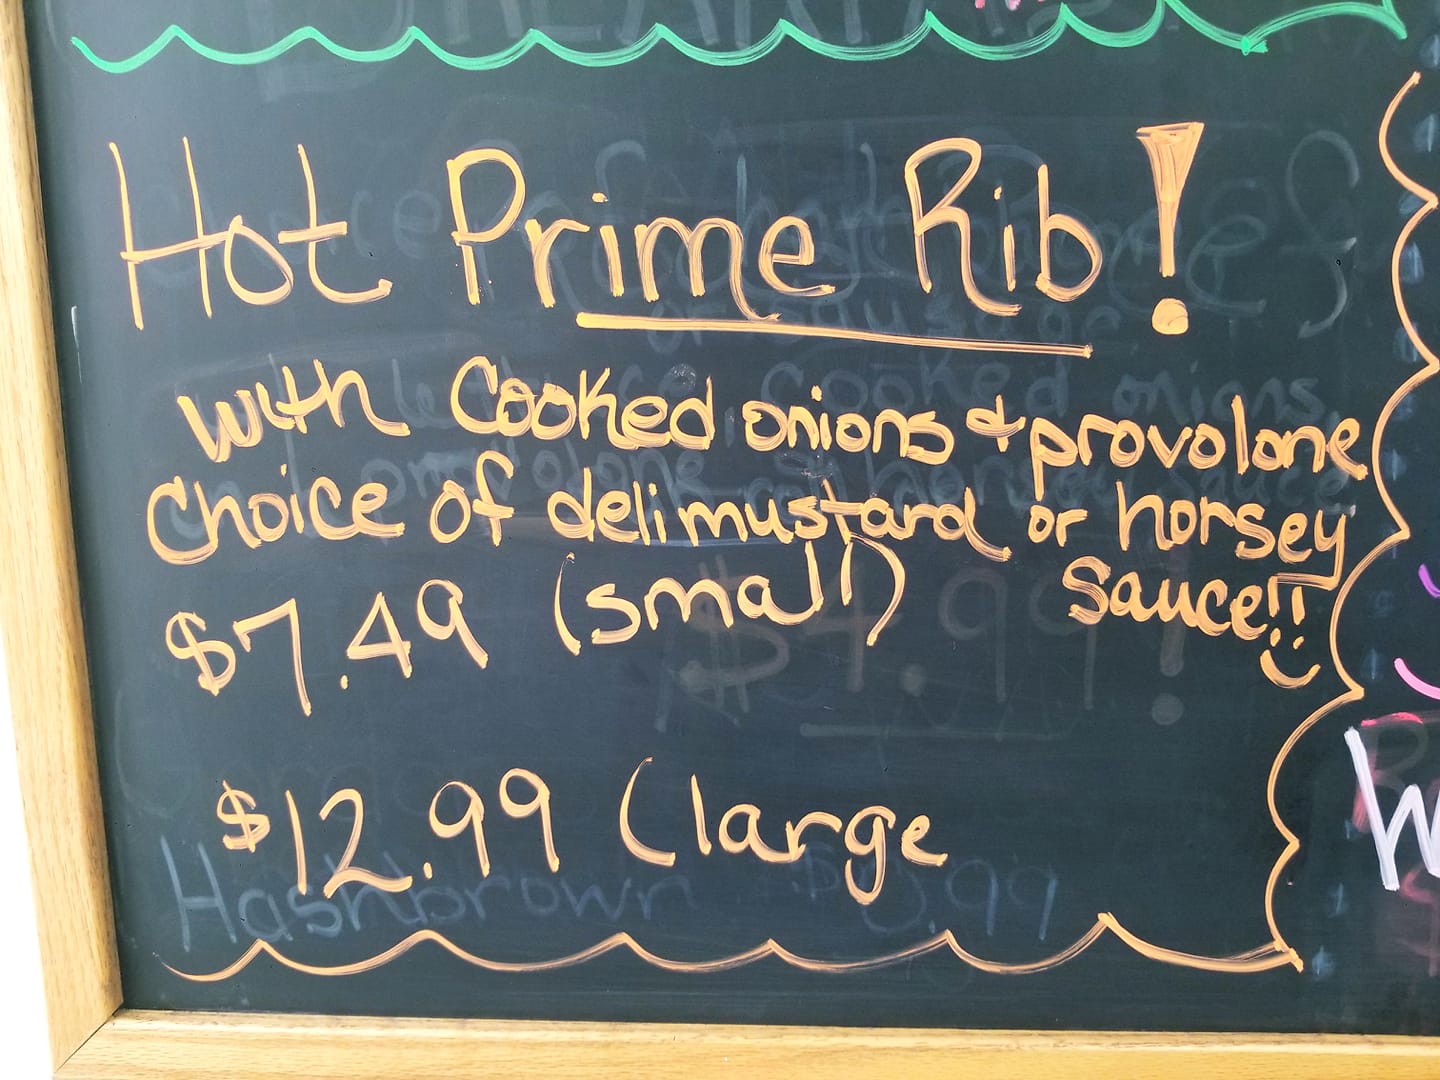 Hot Prime Rib!
with Cooked onions & provolone
Choice of deli mustard or horsey
sauce!!
$7.49 (small)
$12.99 (large
Hashbrown $0.99
$4.99!